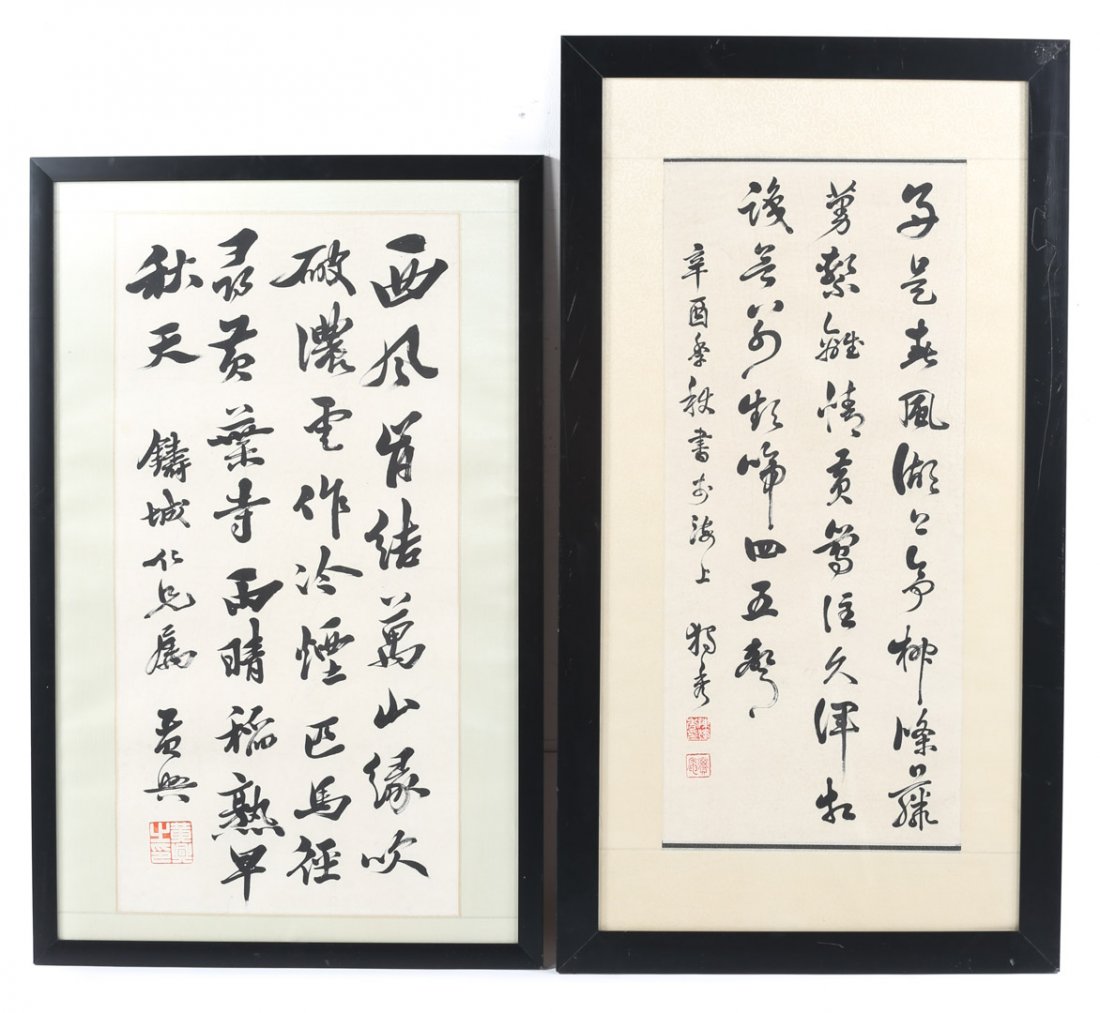 好是春風湖上亭柳條藤
蔓繫離情黃鶯住久渾相
識欲別頻啼四五聲
辛酉季秋書於海上 獨秀
西風肯結萬山緣吹
破濃雲作冷煙匹馬徑
尋黃葉寺雨晴稻熟早
秋天 鑄城仁兄屬